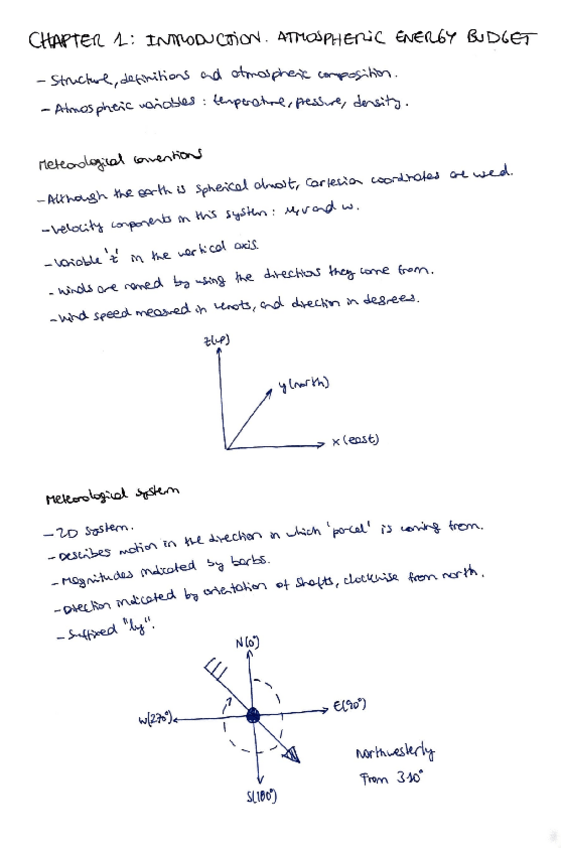 CHAPTER 1: INTRODUCTION. ATMOSPHERIC ENERGY BUDGET
- Structure, definitions and atmospheric composition.
- Atmospheric variables: temperature, pressure, density.
Meteorological conventions
- Although the earth is spherical almost, Cartesian coordinates are used.
- Velocity components in this system: u, v and w.
- Variable 'z' in the vertical axis.
- Winds are named by using the directions they come from.
- Wind speed measured in knots, and direction in degrees.
z(up)
y(north)
x(east)
Meteorological system
- 2D system.
- Describes motion in the direction in which 'parcel' is coming from.
- Magnitudes indicated by barbs.
- Direction indicated by orientation of shafts, clockwise from north.
- Suffixed "ly".
N(0°)
W(270°)
E(90°)
S(180°)
Northwesterly
From 310°